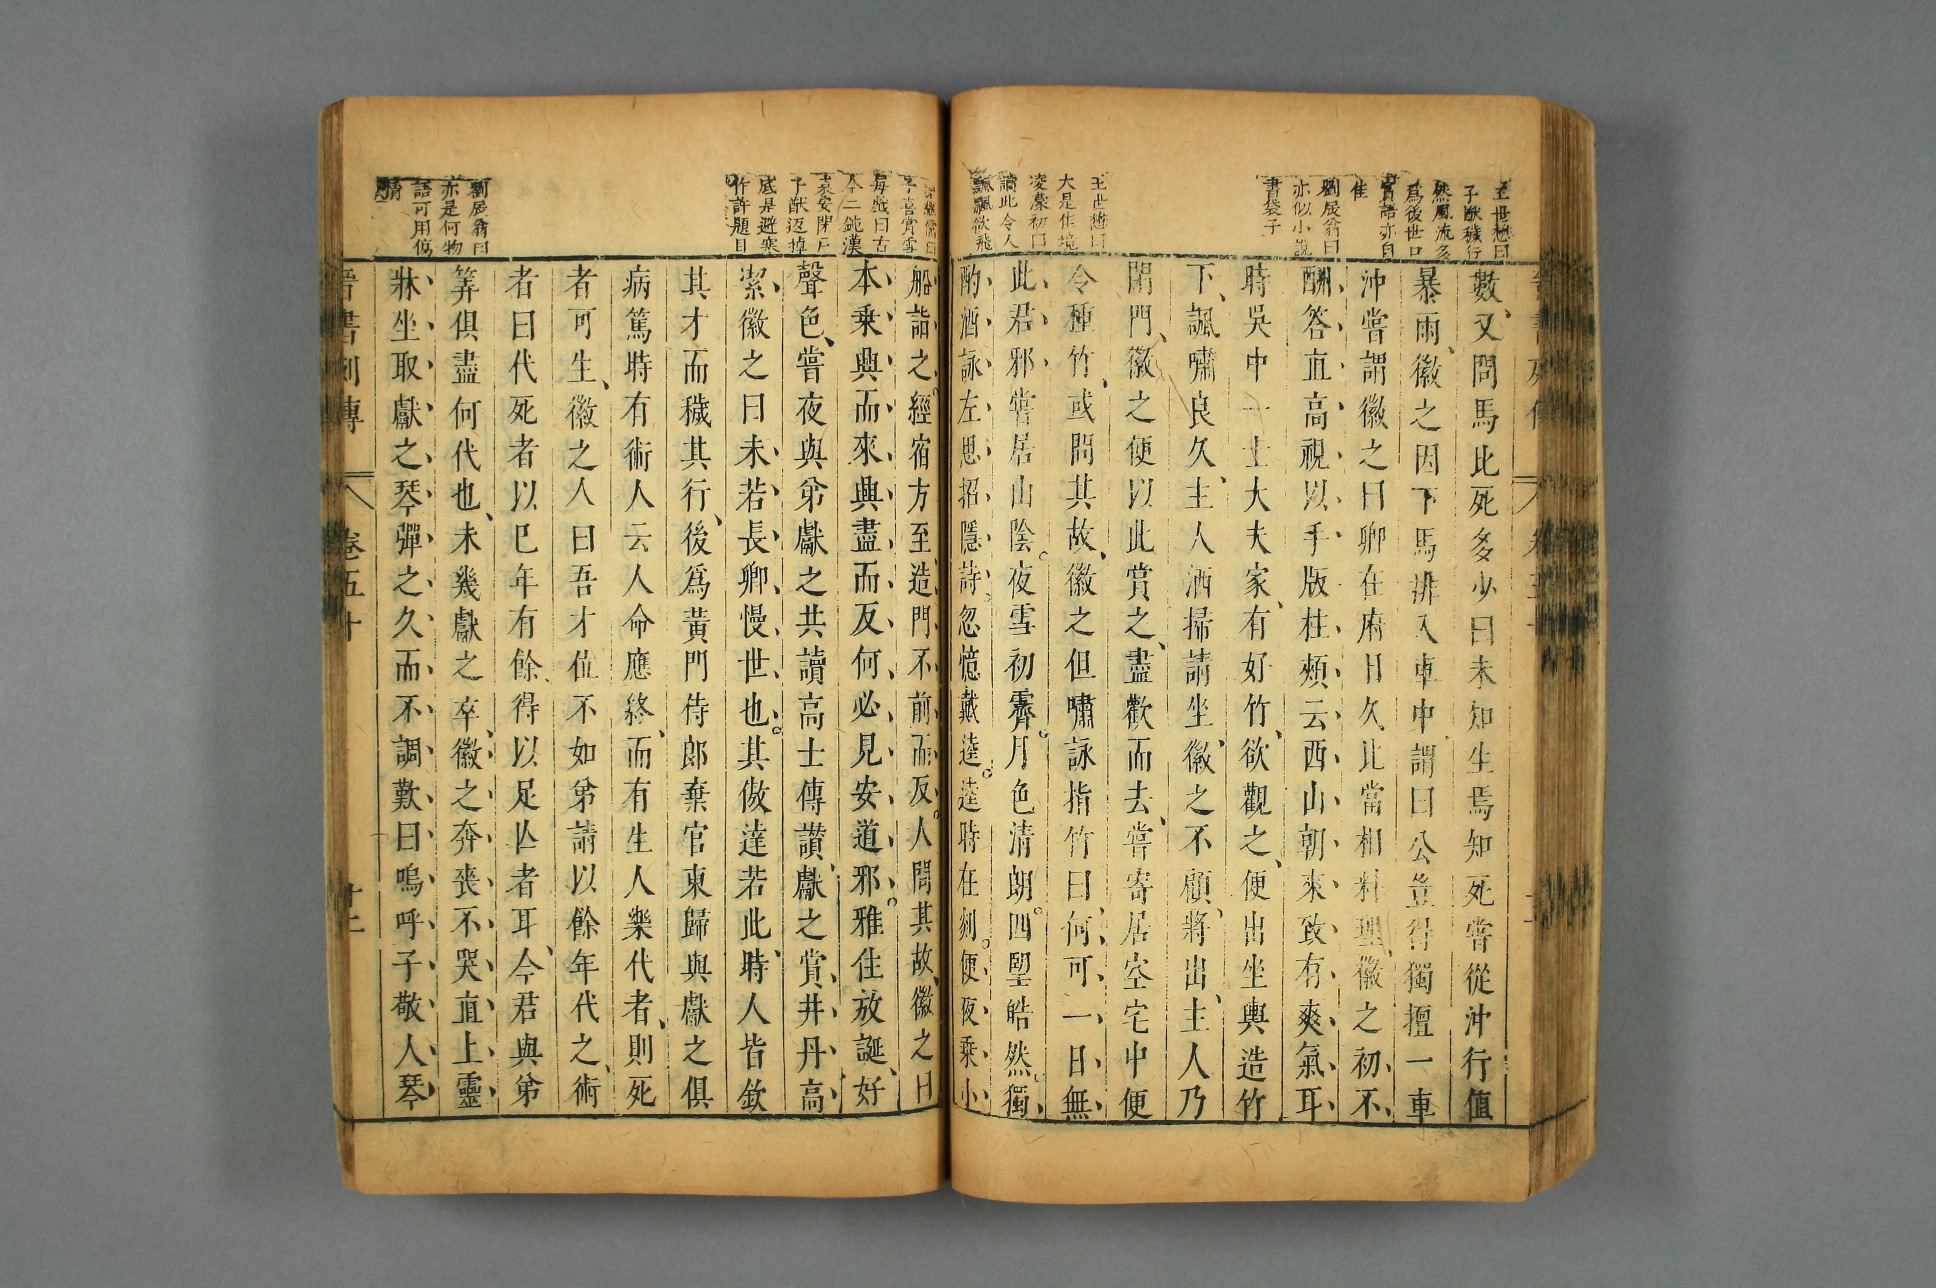 王世懋曰
子猷穢行
然風流多
爲後世口
實語亦自
佳
劉辰翁曰
亦似小說
書袋子
王世懋曰
大是佳境
凌濛初曰
讀此令人
飄飄欲飛
數又問馬比死多少曰未知生焉知死嘗從沖行值
暴雨徽之因下馬排入車中謂曰公豈得獨擅一車
沖嘗謂徽之曰卿在府日久比當相料理徽之初不
酬答直高視以手版柱頰云西山朝來致有爽氣耳
時吳中一士大夫家有好竹欲觀之便出坐輿造竹
下諷嘯良久主人洒掃請坐徽之不顧將出主人乃
閉門徽之便以此賞之盡歡而去嘗寄居空宅中便
令種竹或問其故徽之但嘯詠指竹曰何可一日無
此君邪嘗居山陰夜雪初霽月色清朗四望皓然獨
酌酒詠左思招隱詩忽憶戴逵逵時在剡便夜乘小
子喜賞雪
每戲曰古
今二鈍漢
袁安閉戶
子猷返掉
底是避寒
作許題目
劉辰翁曰
亦是何物
語可用傷
情
船詣之經宿方至造門不前而反人問其故徽之曰
本乘興而來興盡而反何必見安道邪雅性放誕好
聲色嘗夜與弟獻之共讀高士傳讚獻之賞井丹高
潔徽之曰未若長卿慢世也其傲達若此時人皆欽
其才而穢其行後爲黃門侍郎棄官東歸與獻之俱
病篤時有術人云人命應終而有生人樂代者則死
者可生徽之人曰吾才位不如弟請以餘年代之術
者曰代死者以已年有餘得以足亾者耳今君與弟
筭俱盡何代也未幾獻之卒徽之奔喪不哭直上靈
牀坐取獻之琴彈之久而不調歎曰嗚呼子敬人琴
晉書列傳 卷五十 十二